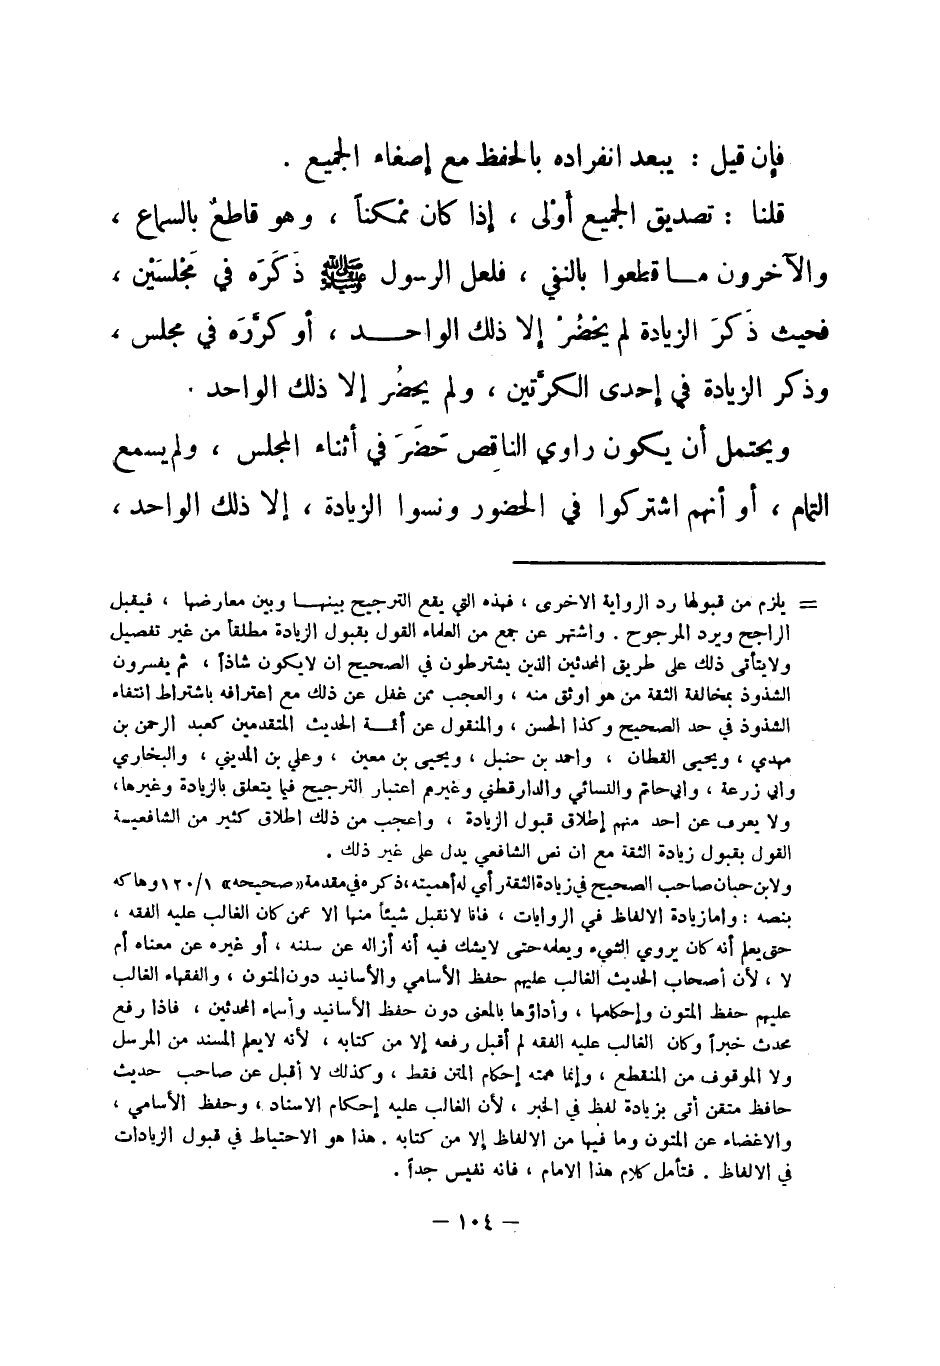 فإن قيل : يبعد انفراده بالحفظ مع إصغاء الجميع .
قلنا : تصديق الجميع أَوْلى ، إذا كان ممْكناً ، وهو قاطعٌ بالسماع ،
والآخرون مـا قطعوا بالنفي ، فلعل الرسول ﷺ ذَكَرَه في مَجْلسَيْن ،
فحيث ذَكرَ الزيادة لم يَحْضُرْ إلا ذلك الواحـــد ، أو كرَّرَه في مجلس ،
وذكر الزيادة في إحدى الكرَّتين ، ولم يحضُر إلا ذلك الواحد .
ويحتمل أن يكون راوي الناقص حَضَرَ في أثناء المجلس ، ولم يسمع
التمام ، أو أنهم اشتركوا في الحضور ونسوا الزيادة ، إلا ذلك الواحد ،
= يلزم من قبولها رد الرواية الاخرى ، فهذه التي يقع الترجيح بينهـا وبين معارضها ، فيقبل
الراجح ويرد المرجوح . واشتهر عن جمع من العلماء القول بقبول الزيادة مطلقاً من غير تفصيل
ولايتأتى ذلك على طريق المحدثين الذين يشترطون في الصحيح ان لايكون شاذاً ، ثم يفسرون
الشذوذ بمخالفة الثقة من هو اوثق منه ، والعجب ممن غفل عن ذلك مع اعترافه باشتراط انتفاء
الشذوذ في حد الصحيح وكذا الحسن ، والمنقول عن أئمـة الحديث المتقدمين كعبد الرحمن بن
مهدي ، ويحيى القطان ، واحمد بن حنبل ، ويحيى بن معين ، وعلي بن المديني ، والبخاري
وابي زرعة ، وابي حاتم والنسائي والدارقطني وغيرهم اعتبار الترجيح فيا يتعلق بالزيادة وغيرها،
ولا يعرف عن احد منهم إطلاق قبول الزيادة ، واعجب من ذلك اطلاق كثير من الشافعيـة
القول بقبول زيادة الثقة مع ان نص الشافعي يدل على غير ذلك .
ولابن حبان صاحب الصحيح في زيادة الثقة رأي له أهميته، ذكره في مقدمة «صحيحه» ١٢٠/١ وهاكه
بنصه : واما زيادة الالفاظ في الروايات ، فانا لانقبل شيئاً منها الا عمن كان الغالب عليه الفقه ،
حتى يعلم أنه كان يروي الشيء ويعلمه حتى لايشك فيه أنه أزاله عن سننه ، أو غيره عن معناه أم
لا ، لأن أصحاب الحديث الغالب عليهم حفظ الأسامي والأسانيد دون المتون ، والفقهاء الغالب
عليهم حفظ المتون وإحكامها ، وأداؤها بالمعنى دون حفظ الأسانيد وأسماء المحدثين ، فاذا رفع
محدث خبراً وكان الغالب عليه الفقه لم أقبل رفعه إلا من كتابه ، لأنه لايعلم المسند من المرسل
ولا الموقوف من المنقطع ، وإنما همته إحكام المتن فقط ، وكذلك لا أقبل عن صاحب حديث
حافظ متقن أتى بزيادة لفظ في الخبر ، لأن الغالب عليه إحكام الاسناد ، وحفظ الأسامي ،
والاغضاء عن المتون وما فيها من الالفاظ إلا من كتابه . هذا هو الاحتياط في قبول الزيادات
في الالفاظ . فتأمل كلام هذا الامام ، فانه نفيس جداً .
– ١٠٤ –